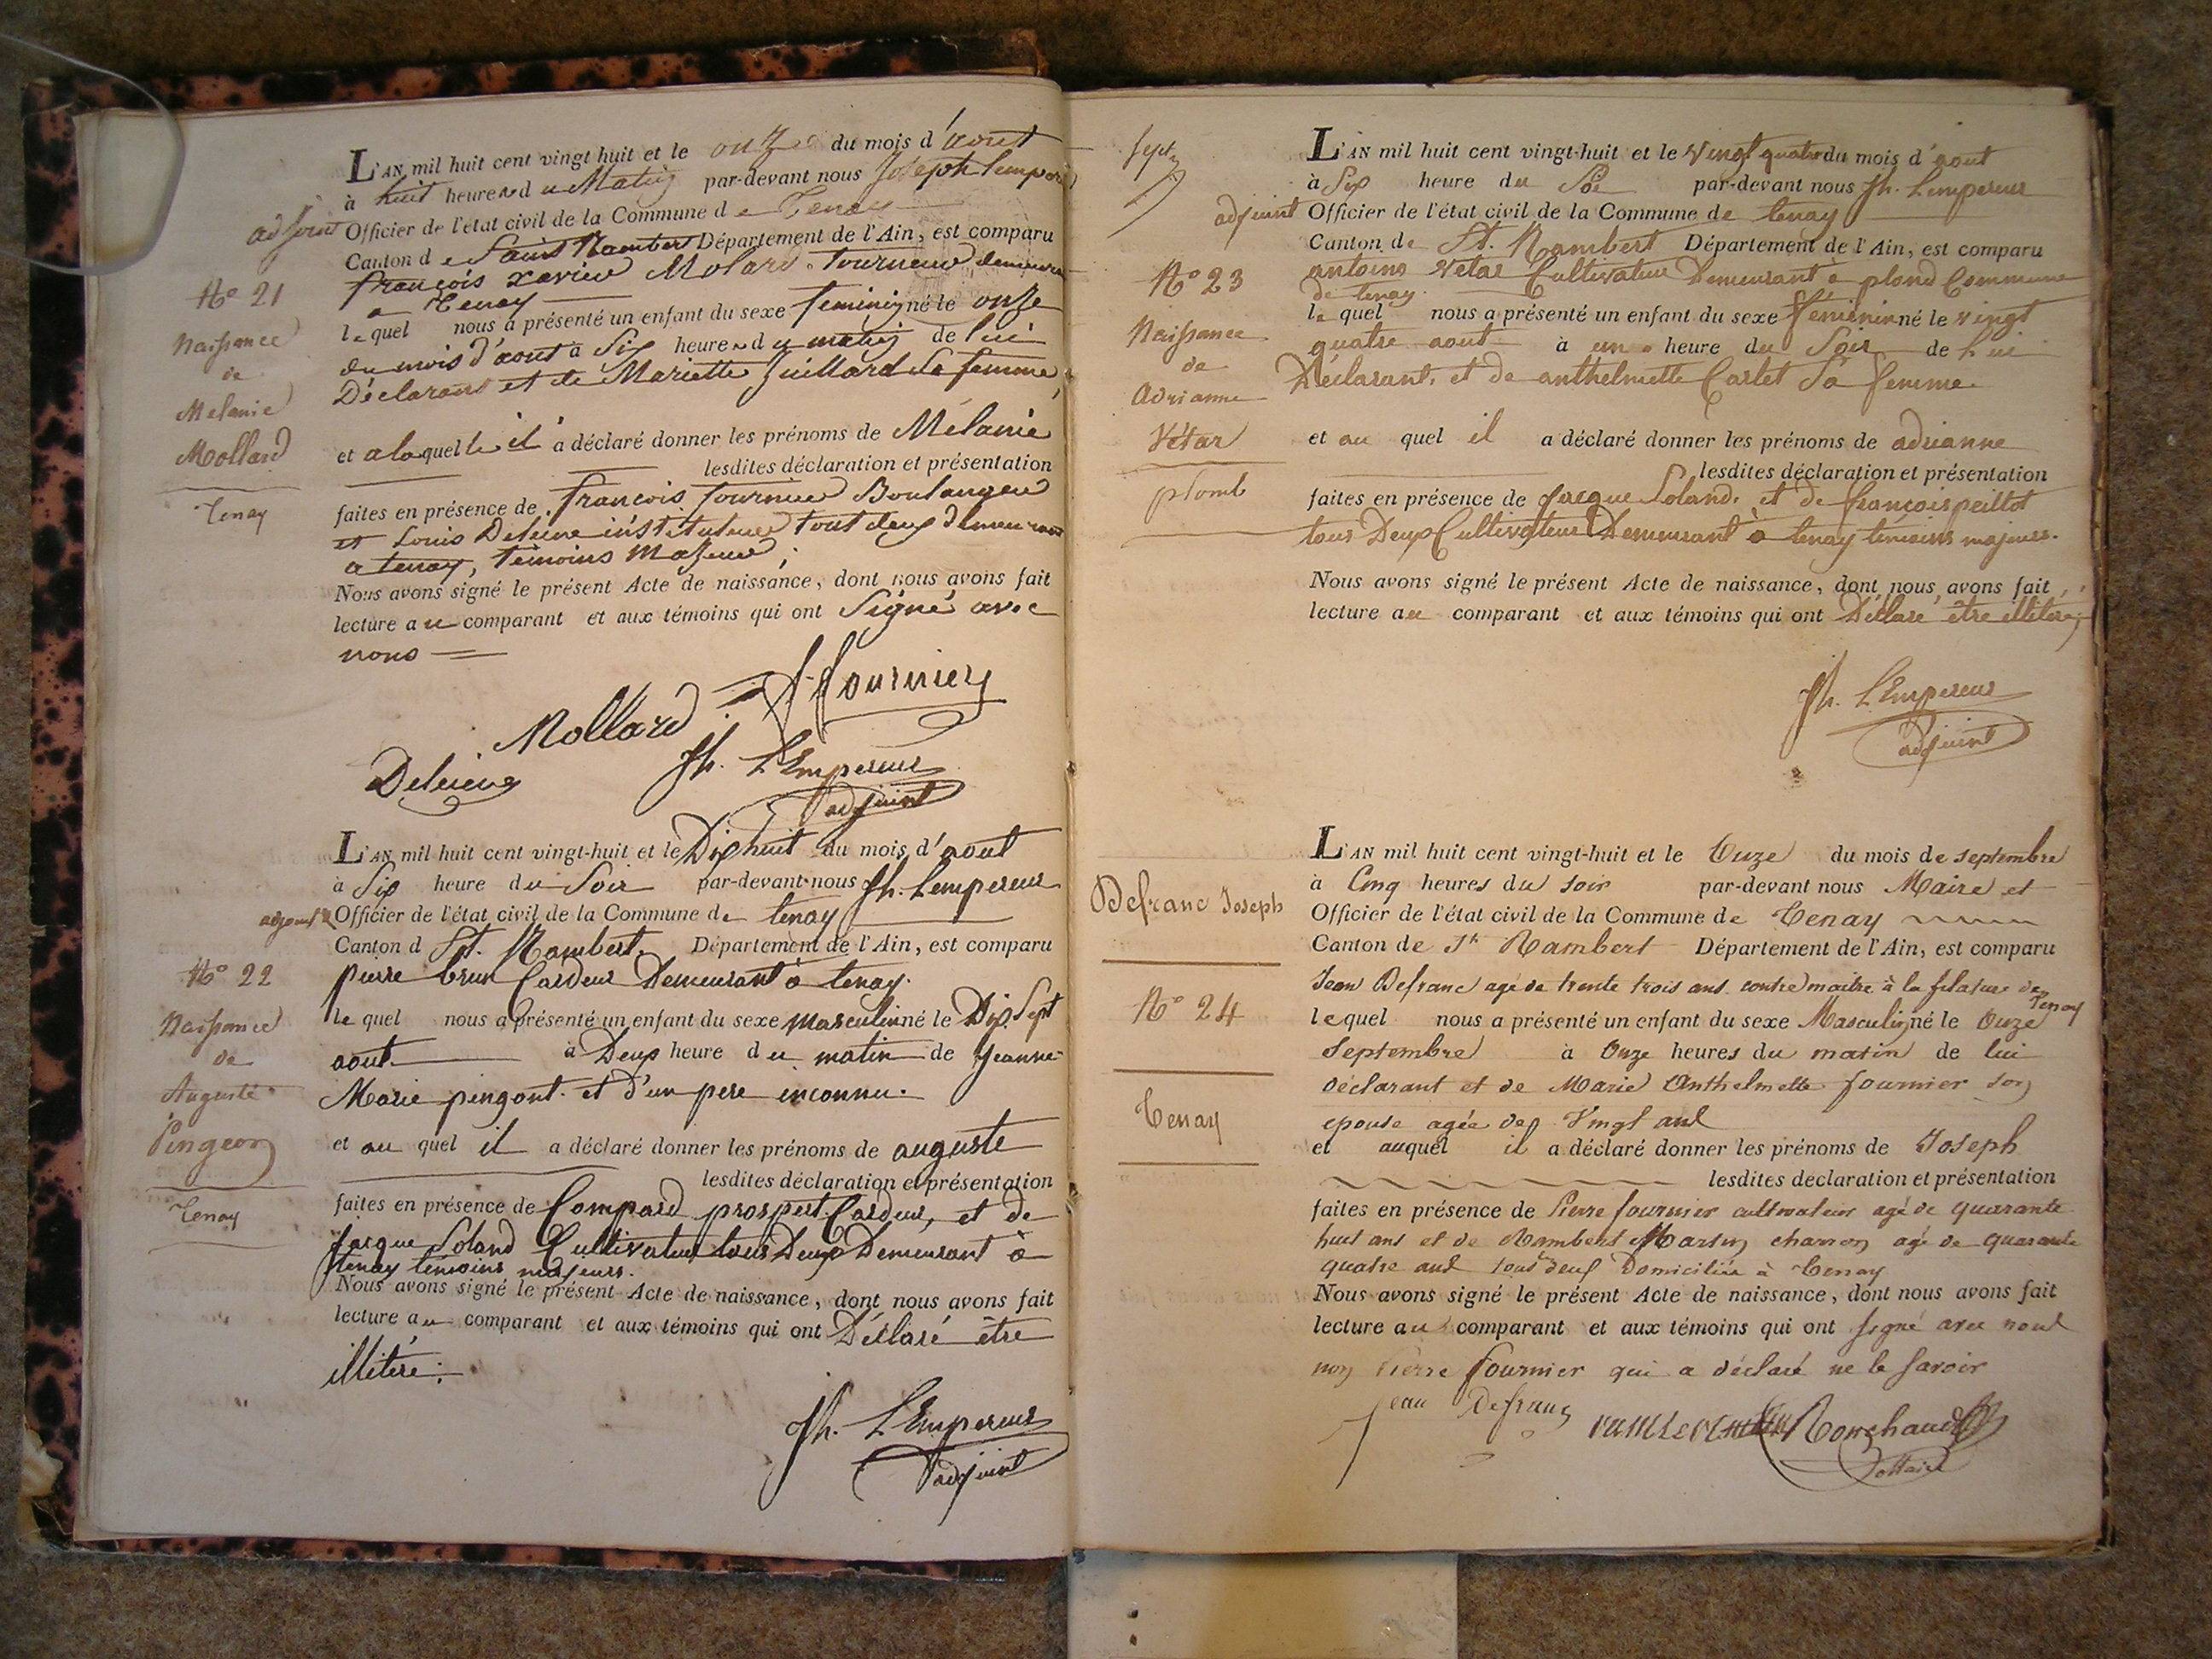 L'AN mil huit cent vingt huit et le onze du mois d'aout
à huit heure du Matin par-devant nous Joseph Lempereur
adjoint Officier de l'état civil de la Commune de Tenay
Canton de Saint Rambert Département de l'Ain, est comparu
françois xavier Molard tourneur demeurant
a Tenay
lequel nous a présenté un enfant du sexe feminin né le onze
du mois d'aout à Six heure du matin de lui
Déclarant et de Mariette Juillard Sa femme,
et a laquelle il a déclaré donner les prénoms de Mélanie
lesdites déclaration et présentation
faites en présence de françois fournier Boulanger
et Louis Deleuve instituteur tout deux demeurant
a tenay, témoins Majeur;
Nous avons signé le présent Acte de naissance, dont nous avons fait
lecture au comparant et aux témoins qui ont Signé avec
nous
N° 21
Naissance
de
Melanie
Mollard
Tenay
f fournier
Mollard
Jh. L'Empereur
adjoint
L'AN mil huit cent vingt-huit et le Dix huit du mois d'aout
à Six heure du Soir par-devant nous Jh. Lempereur
adjoint Officier de l'état civil de la Commune de tenay
Canton d St. Rambert. Département de l'Ain, est comparu
pierre brun Cardeur Demeurant à tenay.
le quel nous a présenté un enfant du sexe masculin né le Dix Sept
aout à Deux heure du matin de Jeanne
Marie pingont et d'un pere inconnu.
et au quel il a déclaré donner les prénoms de auguste
lesdites déclaration et présentation
faites en présence de Compard prospert Cardeur, et de
Jacque Soland Cultivateur tous Deux Demeurant à
tenay témoins majeurs.
Nous avons signé le présent Acte de naissance, dont nous avons fait
lecture au comparant et aux témoins qui ont Déclaré être
illitéré.
N° 22
Naissance
de
Auguste
Pingeon
Tenay
Jh. L'Empereur
adjoint
L'AN mil huit cent vingt-huit et le vingt quatre du mois d'aout
à Six heure du Soir par-devant nous Jh. Lempereur
adjoint Officier de l'état civil de la Commune de tenay
Canton de St. Rambert Département de l'Ain, est comparu
antoine vetar Cultivateur Demeurant à plond Commune
de tenay
le quel nous a présenté un enfant du sexe féminin né le vingt
quatre aout à une heure du Soir de lui
Déclarant et de anthelmette Carlet Sa femme
et au quel il a déclaré donner les prénoms de adrianne
lesdites déclaration et présentation
faites en présence de Jacque Soland. et de françois peillot
tous Deux Cultivateur Demeurant à tenay témoins majeurs.
Nous avons signé le présent Acte de naissance, dont nous avons fait
lecture au comparant et aux témoins qui ont Déclaré être illitéré
N° 23
Naissance
de
Adrianne
Vétar
plomb
Jh. L'Empereur
adjoint
L'AN mil huit cent vingt-huit et le Onze du mois de septembre
à Cinq heures du soir par-devant nous Maire et
Officier de l'état civil de la Commune de Tenay
Canton de St Rambert Département de l'Ain, est comparu
Jean Defranc agé de trente trois ans contre maitre à la filature de
Tenay
lequel nous a présenté un enfant du sexe Masculin né le Onze
Septembre à Onze heures du matin de lui
déclarant et de Marie Anthelmette fournier son
epouse agée de Vingt ans
et auquel il a déclaré donner les prénoms de Joseph
lesdites declaration et présentation
faites en présence de Pierre fournier cultivateur agé de quarante
huit ans et de Rambert Martin charron agé de quarante
quatre ans tous deux Domiciliés à Tenay
Nous avons signé le présent Acte de naissance, dont nous avons fait
lecture au comparant et aux témoins qui ont signé avec nous
non Pierre fournier qui a déclaré ne le savoir
Defranc Joseph
N° 24
Tenay
jean Defranc